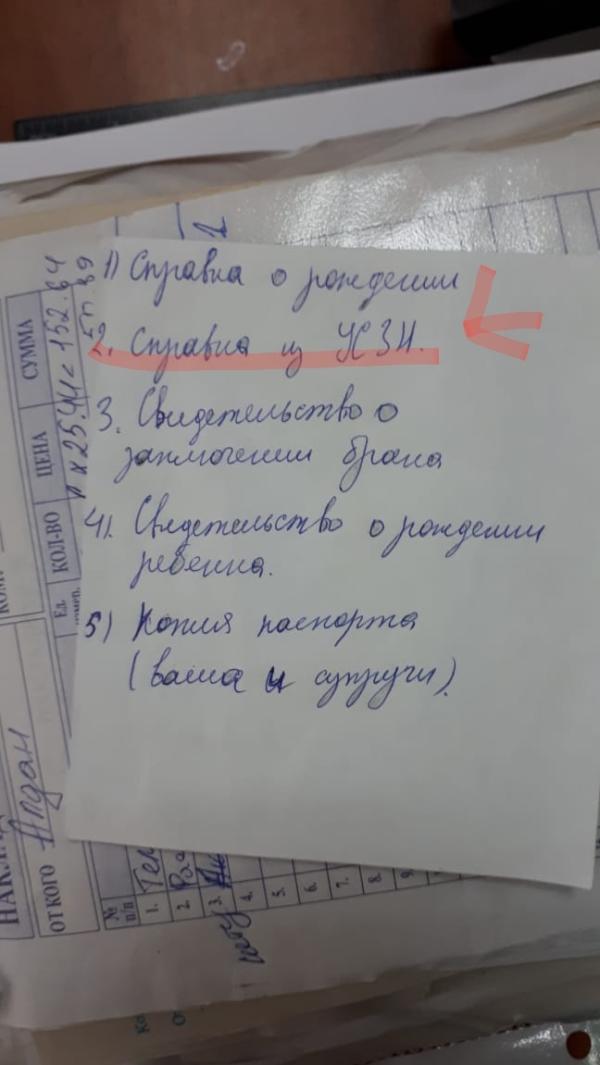 1) Справка о рождении
2. Справка из УСЗН.
3. Свидетельство о
заключении брака
4). Свидетельство о рождении
ребенка.
5) Копия паспорта
(ваша и супруги).
СУММА
ЦЕНА
КОЛ-ВО
Ед.
х 25.44 = 152.64
НАКЛАД
ОТ КОГО
№
п/п
1.
2.
3.
4.
5.
6.
7.
8.
9.